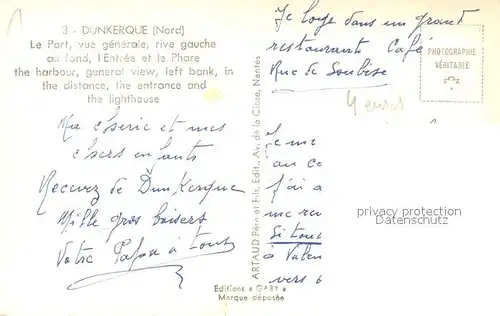 3 - DUNKERQUE (Nord)
Le Port, vue générale, rive gauche
au fond, l'Entrée et le Phare
the harbour, general view, left bank, in
the distance, the entrance and
the lighthouse
Ma cherie et mes
chers enfants
Recevez de Dunkerque
Mille gros baisers
Votre Papa à tous
ARTAUD Père et Fils, Édit., Av. de la Close, Nantes
Editions « GABY »
Marque déposée
Je loge dans un grand
restaurants Café
Rue de Soubise
PHOTOGRAPHIE
VÉRITABLE
Je me
au ce
j'ai a
me ren
Si tout
à Valen
vers
privacy protection
Datenschutz